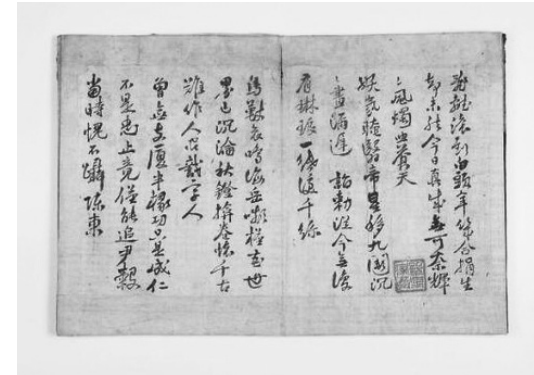 亂離滾到白頭年幾合捐生
却未然今日眞成無可奈輝
ゝ風燭照蒼天
妖氛晻翳帝星移九闕沉
ゝ晝漏遲詔勅從今無復
有琳琅一紙淚千絲
鳥獸哀鳴海岳嚬槿花世
界已沉淪秋燈掩卷懷千古
難作人間識字人
曾無支廈半椽功只是成仁
不是忠止竟僅能追尹穀
當時愧不躡陳東